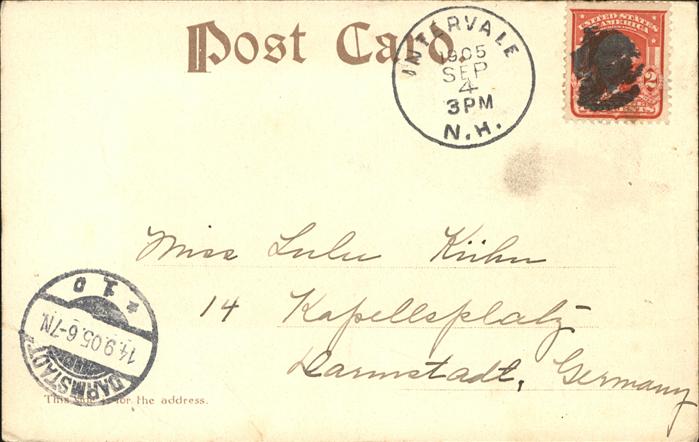 Post Card.
INTERVALE
1905
SEP
4
3PM
N.H.
UNITED STATES
OF AMERICA
2
Miss Lulu Kühn
14 Kapellsplatz
Darmstadt, Germany
* 1 0
14.9.05.6-7N.
DARMSTADT
This side is for the address.